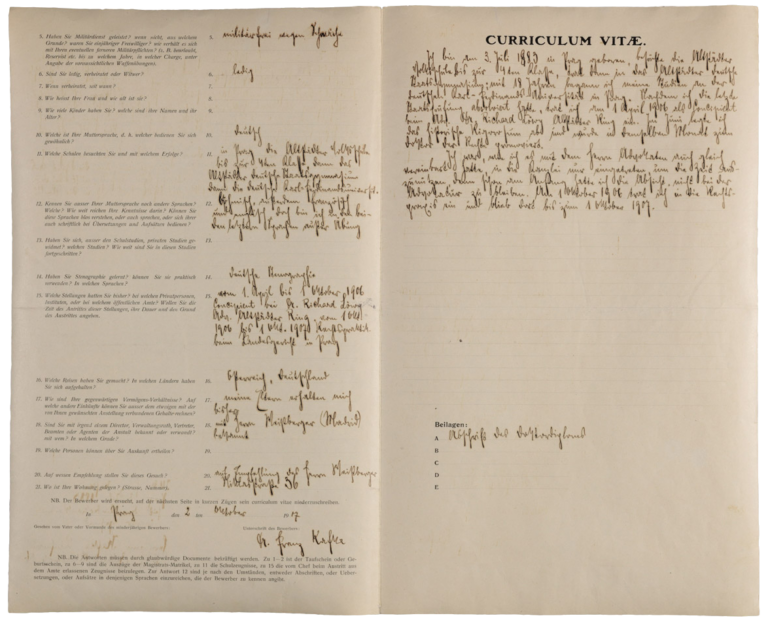 5. Haben Sie Militärdienst geleistet? wenn nicht, aus welchem
Grunde? waren Sie einjähriger Freiwilliger? wie verhält es sich
mit Ihren eventuellen ferneren Militärpflichten? (z. B. beurlaubt,
Reservist etc. bis zu welchem Jahre, in welcher Charge, unter
Angabe der voraussichtlichen Waffenübungen).
5. militärfrei wegen Schwäche
6. Sind Sie ledig, verheiratet oder Witwer?
6. ledig
7. Wenn verheiratet, seit wann?
7.
8. Wie heisst Ihre Frau und wie alt ist sie?
8.
9. Wie viele Kinder haben Sie? welche sind ihre Namen und ihr
Alter?
9.
10. Welche ist Ihre Muttersprache, d. h. welcher bedienen Sie sich
gewöhnlich?
10. deutsch
11. Welche Schulen besuchten Sie und mit welchem Erfolge?
11. in Prag die Altstädter Volksschule
bis zur 4ten Klasse dann das
Altstädter deutsche Staatsgymnasium
dann die deutsche Karl-Ferdinandsuniversit.
12. Kennen Sie ausser Ihrer Muttersprache noch andere Sprachen?
Welche? Wie weit reichen Ihre Kenntnisse darin? Können Sie
diese Sprachen blos verstehen, oder auch sprechen, oder sich ihrer
auch schriftlich bei Übersetzungen und Aufsätzen bedienen?
12. böhmisch, außerdem französisch
und englisch, doch bin ich in den bei-
den letztern Sprachen außer Übung
13. Haben Sie sich, ausser den Schulstudien, privaten Studien ge-
widmet? welchen Studien? Wie weit sind Sie in diesen Studien
fortgeschritten?
13.
14. Haben Sie Stenographie gelernt? können Sie sie praktisch
verwenden? In welchen Sprachen?
14. deutsche Stenographie
15. Welche Stellungen hatten Sie bisher? bei welchen Privatpersonen,
Instituten, oder bei welchem öffentlichen Amte? Wollen Sie die
Zeit des Antrittes dieser Stellungen, ihre Dauer und den Grund
des Austrittes angeben.
15. vom 1. April bis 1 Oktober 1906
Concipient bei Dr. Richard Löwy
Adv. Altstädter Ring, vom 1 Okt.
1906 bis 1 Okt. 1907 Rechtspraktik.
beim Landesgericht in Prag
16. Welche Reisen haben Sie gemacht? In welchen Ländern haben
Sie sich aufgehalten?
16. Österreich, Deutschland
17. Wie sind Ihre gegenwärtigen Vermögens-Verhältnisse? Auf
welche andere Einkünfte können Sie ausser dem etwaigen mit der
von Ihnen gewünschten Anstellung verbundenen Gehalte rechnen?
17. meine Eltern erhalten mich
bisher
18. Sind Sie mit irgend einem Director, Verwaltungsrath, Vertreter,
Beamten oder Agenten der Anstalt bekannt oder verwandt?
mit wem? In welchem Grade?
18. mit Herrn Weißberger (Madrid)
bekannt
19. Welche Personen können über Sie Auskunft ertheilen?
19.
20. Auf wessen Empfehlung stellen Sie dieses Gesuch?
20. auf Empfehlung des Herrn Weißberger
21. Wo ist Ihre Wohnung gelegen? (Strasse, Nummer).
21. Niklasstraße 36
NB. Der Bewerber wird ersucht, auf der nächsten Seite in kurzen Zügen sein curriculum vitae niederzuschreiben.
In Prag den 2 ten Oktober 1907
Unterschrift des Bewerbers
Dr. Franz Kafka
CURRICULUM VITÆ.
Ich bin am 3. Juli 1883 in Prag geboren, besuchte die Altstädter
Volksschule bis zur 4ten Klasse, trat dann in das Altstädter deutsche
Staatsgymnasium; mit 18 Jahren begann ich meine Studien an der
deutschen Karl-Ferdinands Universität in Prag. Nachdem ich die letzte
Staatsprüfung absolviert hatte, trat ich am 1 April 1906 als Concipient
beim Adv. Dr. Richard Löwy Altstädter Ring ein. Im Juni legte ich
das historische Rigorosum ab und wurde in demselben Monat zum
Doktor der Rechte promoviert.
Ich war, wie ich es mit dem Herrn Advokaten auch gleich
vereinbart hatte, in die Kanzlei nur eingetreten, um die Zeit aus-
zunützen, denn schon am Anfang hatte ich die Absicht, nicht bei der
Advokatur zu bleiben. Am 1 Oktober 1906 trat ich in die Rechts-
praxis ein und blieb dort bis zum 1 Oktober 1907.
Beilagen:
A Abschrift des Doktordiploms
B
C
D
E